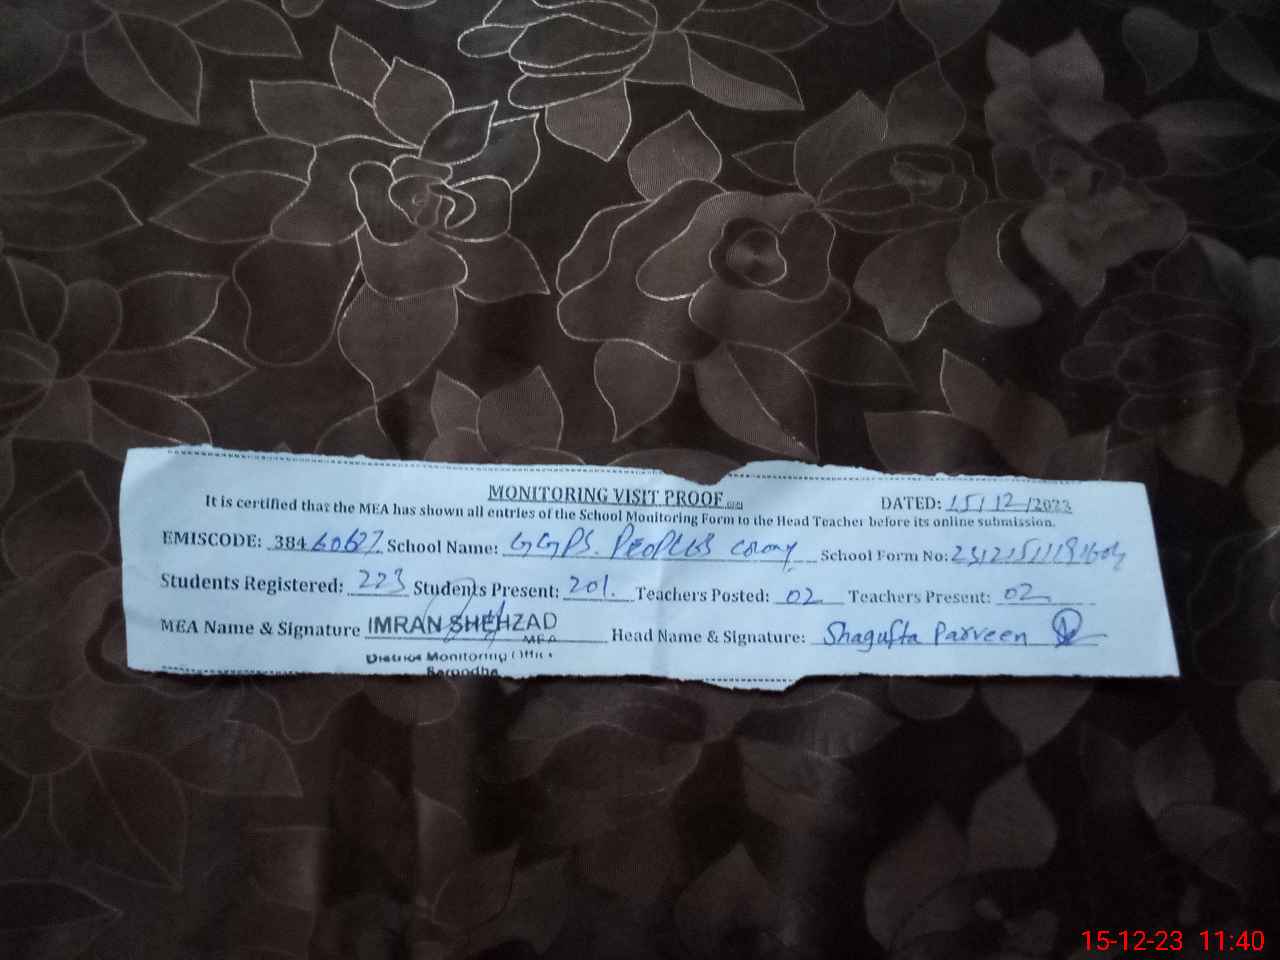 MONITORING VISIT PROOF
DATED: 15/12/2023
It is certified that the MEA has shown all entries of the School Monitoring Form to the Head Teacher before its online submission.
EMISCODE: 38460627 School Name: GGPS. PEOPLES Colony School Form No:
Students Registered: 223 Students Present: 201. Teachers Posted: 02 Teachers Present: 02
MEA Name & Signature IMRAN SHEHZAD Head Name & Signature: Shagufta Parveen
MEA
District Monitoring Office
Sargodha
15-12-23 11:40